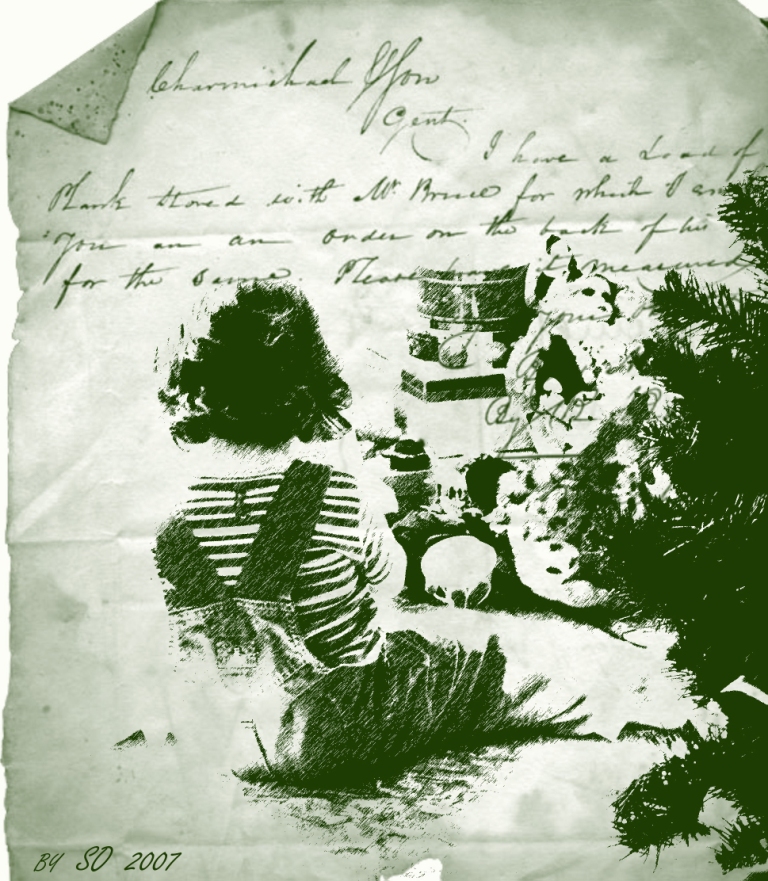 Charmichael & Son
Gent.
I have a Load of
Plank Stored with Mr. Bruce for which I
You an an order on the back of
for the same. Please it measured
Yours
BY SO 2007